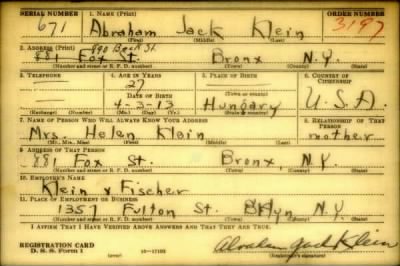 SERIAL NUMBER 1. NAME (Print) ORDER NUMBER
671 Abraham Jack Klein 3197
(First) (Middle) (Last)
2. ADDRESS (Print)
881 Fox St. Bronx N.Y.
(Number and street or R. F. D. number) (Town) (County) (State)
3. TELEPHONE 4. AGE IN YEARS 5. PLACE OF BIRTH 6. COUNTRY OF CITIZENSHIP
27
DATE OF BIRTH
4-3-13 Hungary U.S.A.
(Exchange) (Number) (Mo.) (Day) (Yr.) (Town or county) (State or country)
7. NAME OF PERSON WHO WILL ALWAYS KNOW YOUR ADDRESS 8. RELATIONSHIP OF THAT PERSON
Mrs. Helen Klein mother
(Mr., Mrs., Miss) (First) (Middle) (Last)
9. ADDRESS OF THAT PERSON
881 Fox St. Bronx, N.Y.
(Number and street or R. F. D. number) (Town) (County) (State)
10. EMPLOYER'S NAME
Klein & Fischer
11. PLACE OF EMPLOYMENT OR BUSINESS
1357 Fulton St. Bklyn N.Y.
(Number and street or R. F. D. number) (Town) (County) (State)
I AFFIRM THAT I HAVE VERIFIED ABOVE ANSWERS AND THAT THEY ARE TRUE.
REGISTRATION CARD
D. S. S. Form 1 (over) Abraham Jack Klein
(Registrant's signature)